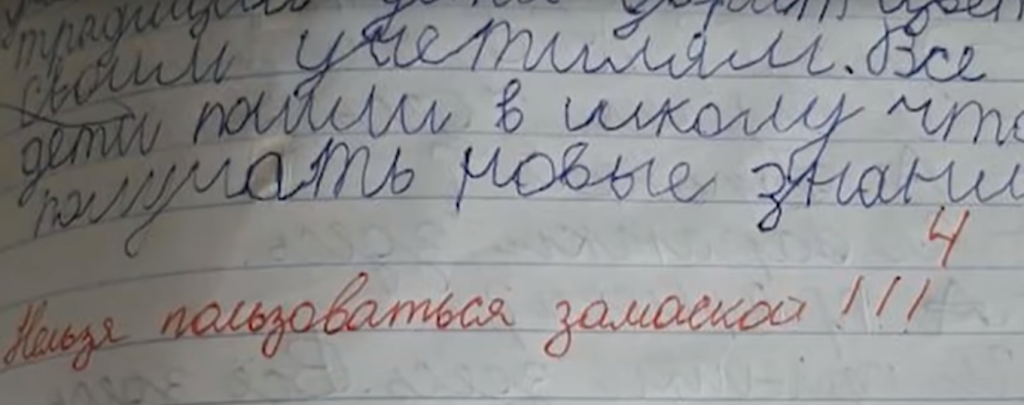 дети дарят
своим учетилям. Все
дети пошли в школу что
получать новые знани
4
Нельзя пользоваться замаской !!!